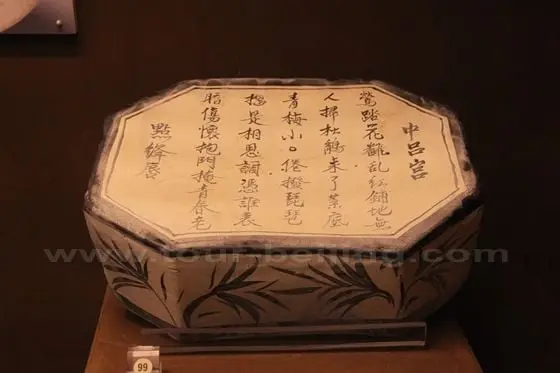 中呂宮
鶯踏花飜乱紅鋪地無
人掃杜鵑来了葉底
青梅小口倦撥琵琶
揔是相思調憑誰表
暗傷懷抱門掩青春老
點絳唇
www.tour-beijing.com
99